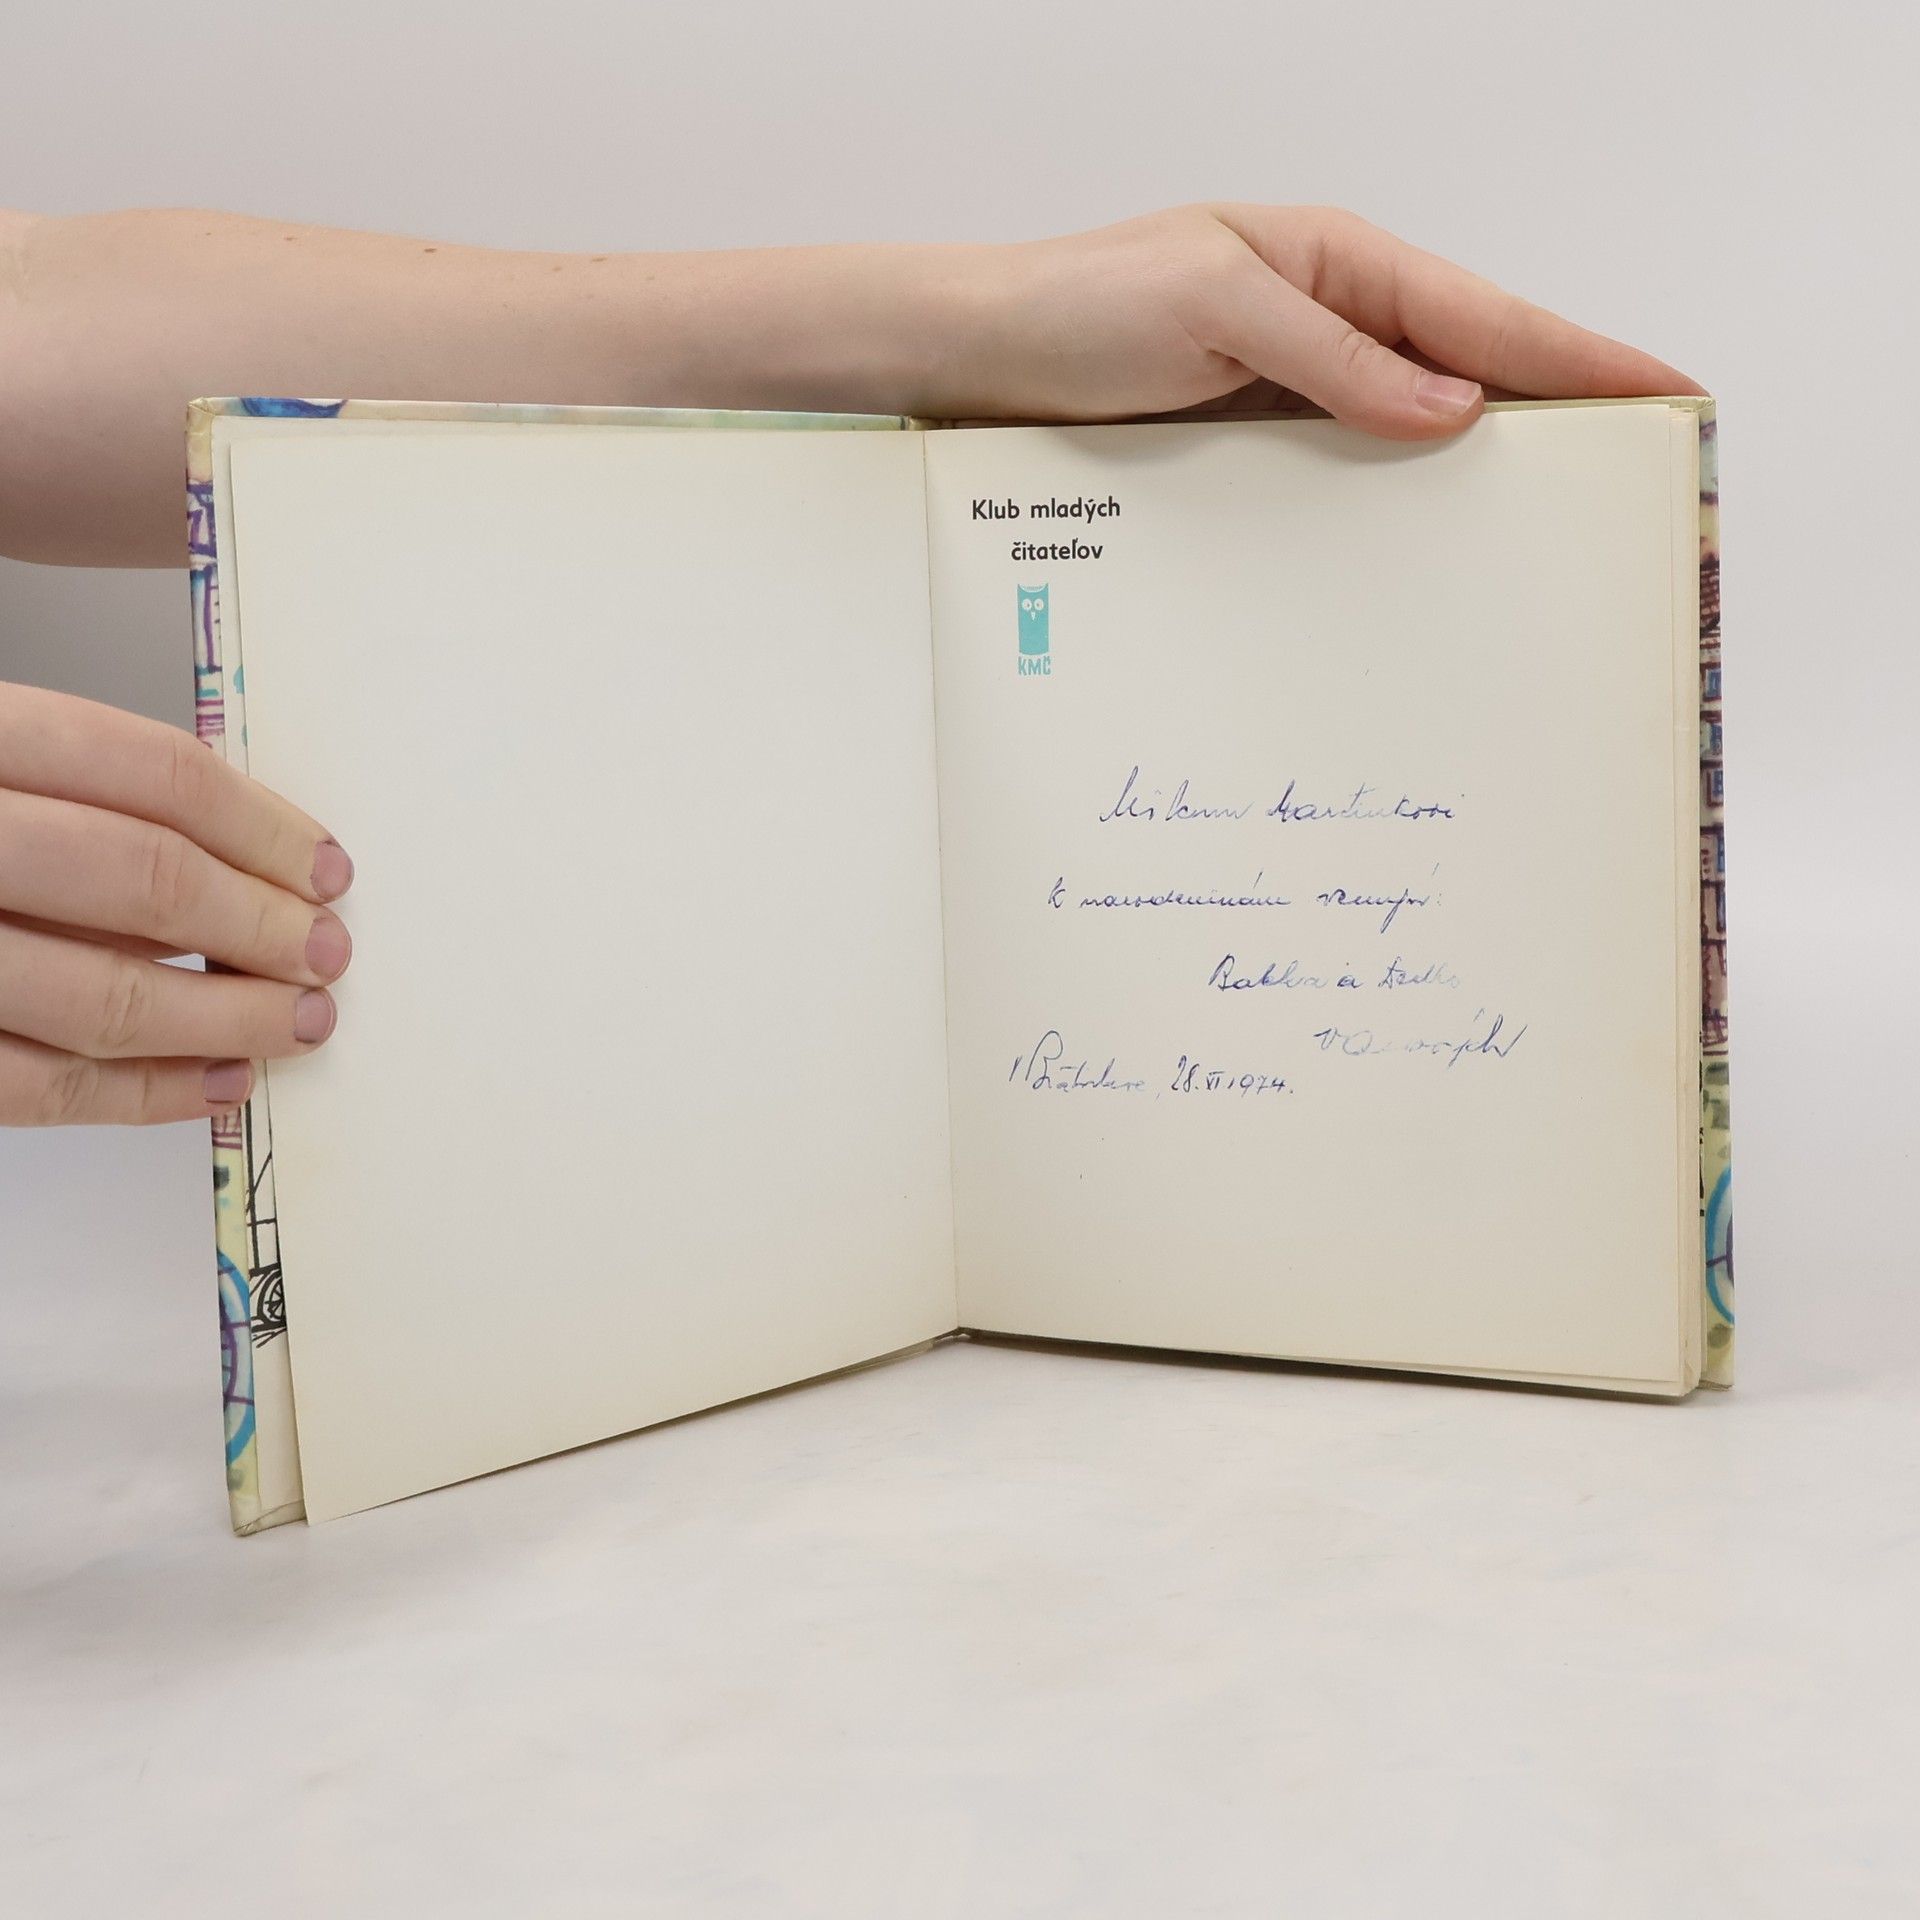 Klub mladých
čitateľov
KMČ
Martinkovi
k narodeninám venujú:
Babka a Dedko
V Bratislave, 28.VI.1974.